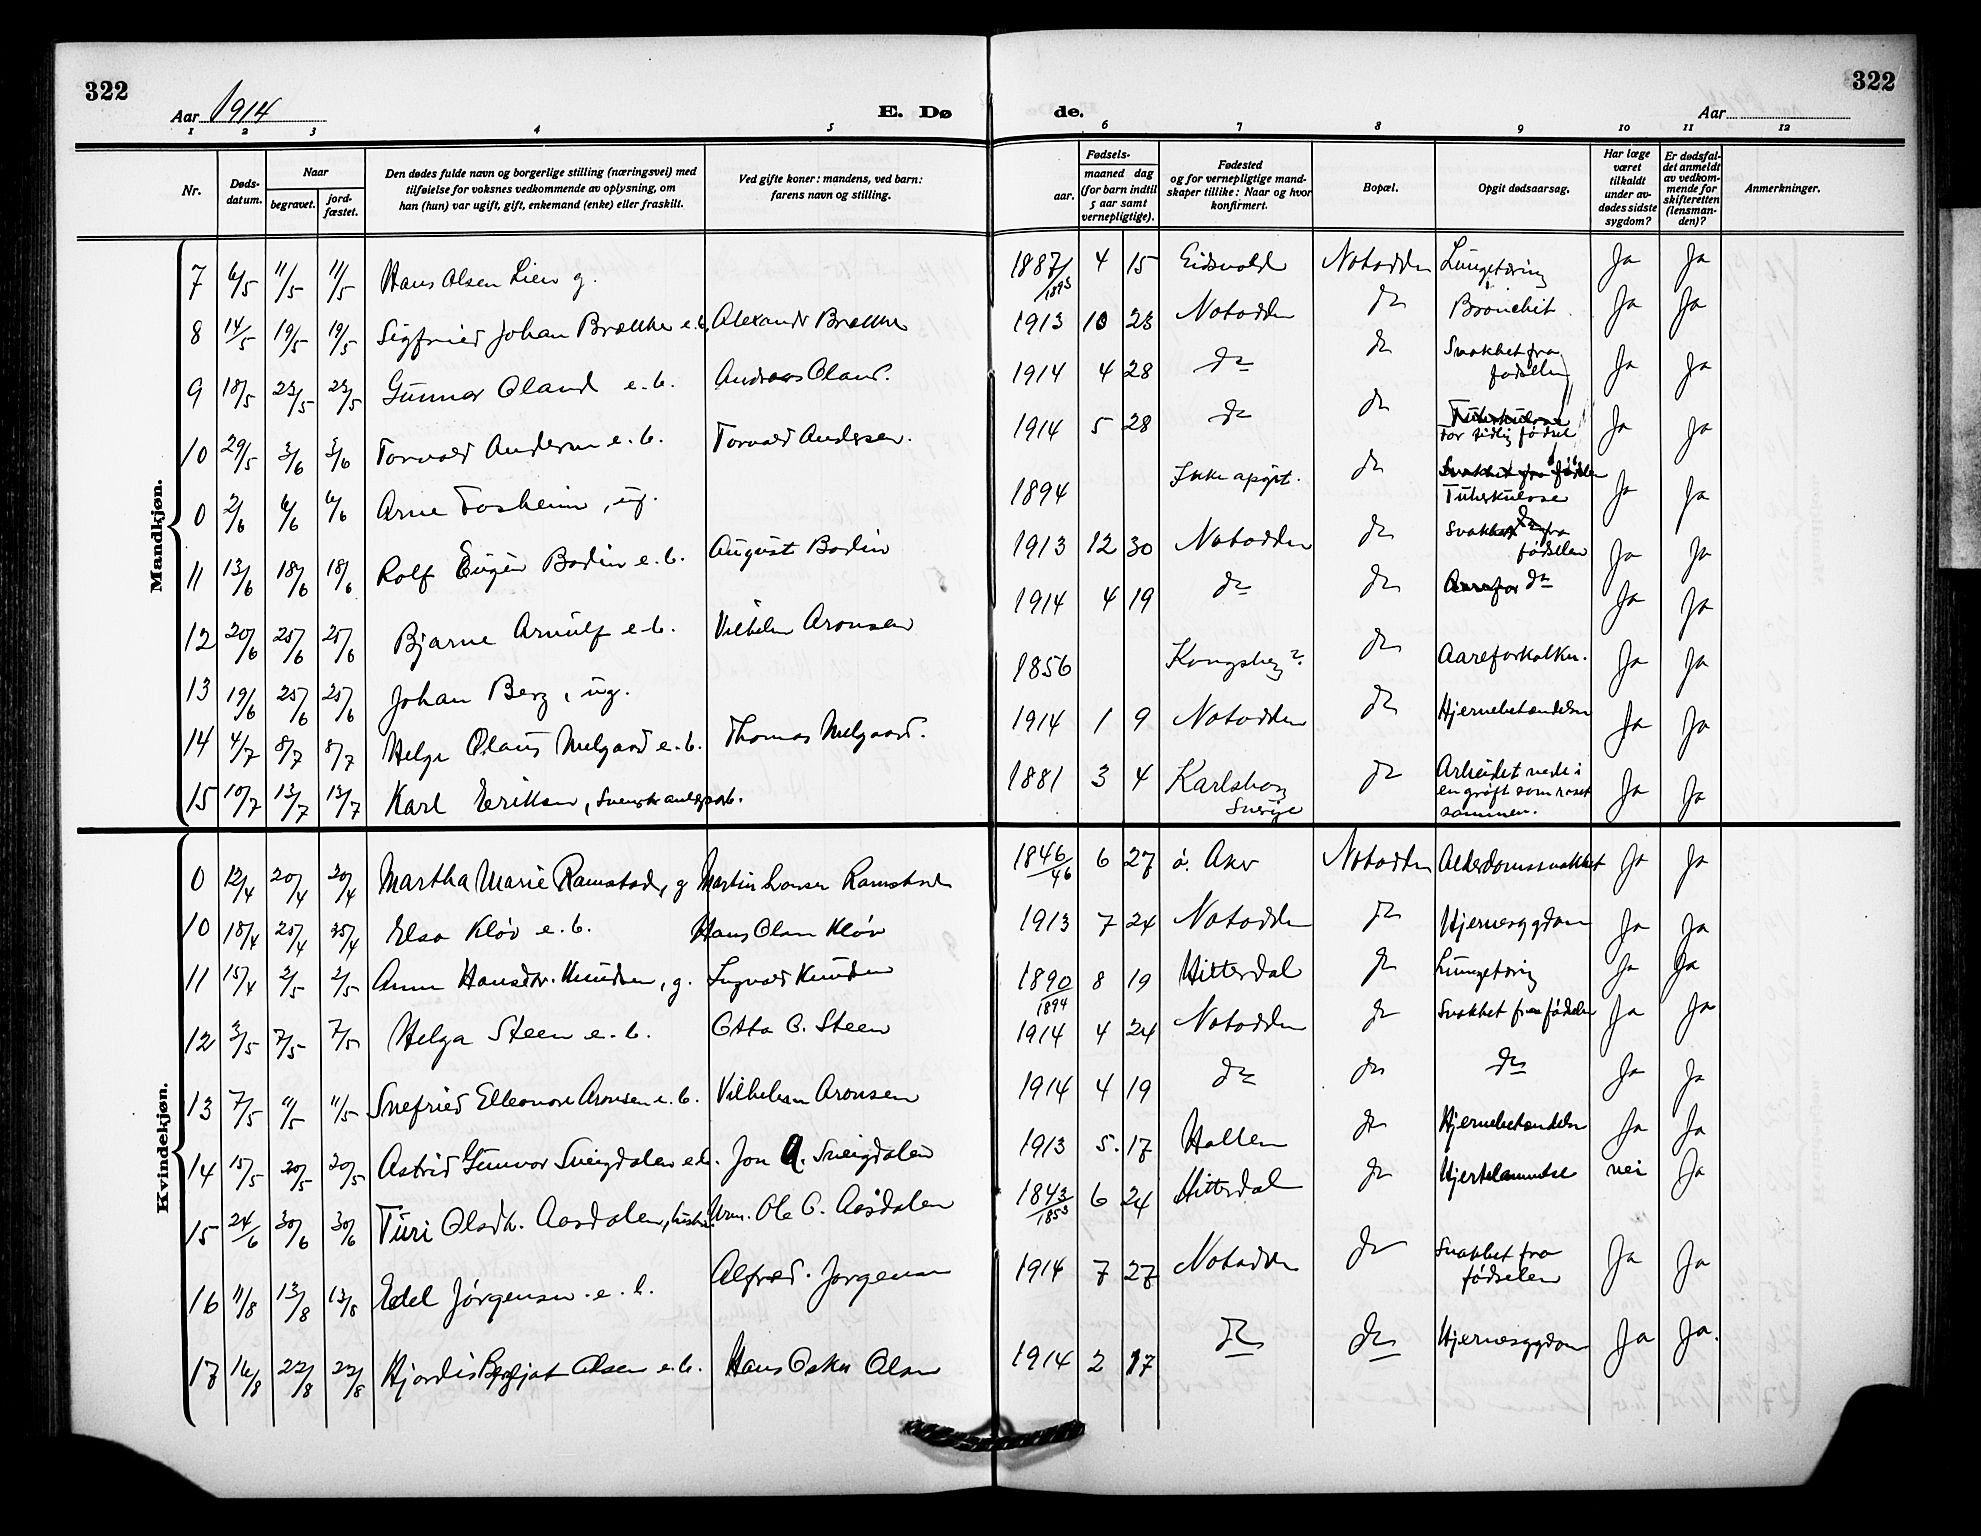 322
322
Aar 1914
E. Dø
de.
Aar
1 2 3 4 5 6 7 8 9 10 11 12
Nr.
Døds-datum.
Naar
begravet.
jord-fæstet.
Den dødes fulde navn og borgerlige stilling (næringsvei) med
tilføielse for voksnes vedkommende av oplysning, om
han (hun) var ugift, gift, enkemand (enke) eller fraskilt.
Ved gifte koner: mandens, ved barn:
farens navn og stilling.
Fødsels-
aar.
maaned dag
(for barn indtil
5 aar samt
vernepligtige).
Fødested
og for vernepligtige mand-
skaper tillike: Naar og hvor
konfirmert.
Bopæl.
Opgit dødsaarsag.
Har læge
været
tilkaldt
under av-
dødes sidste
sygdom?
Er dødsfal-
det anmeldt
av vedkom-
mende for
skifteretten
(lensman-
den)?
Anmerkninger.
Mandkjøn.
7 6/5 11/5 11/5 Hans Olsen Lien g. 1887/1893 4 15 Eidsvold Notodden Lungetæring Ja Ja
8 14/5 19/5 19/5 Sigfried Johan Brække e.b. Alexander Brække 1913 10 23 Notodden do Bronchit. Ja Ja
9 18/5 23/5 23/5 Gunnar Oland e.b. Andreas Oland. 1914 4 28 do do Svakhet fra fødselen Ja Ja
10 29/5 3/6 3/6 Torvald Andersen e.b. Torvald Andersen. 1914 5 28 do do Tuberkulose for tidlig fødsel Ja Ja
0 2/6 6/6 6/6 Arne Fosheim, ug. 1894 Ikke opgit. do Svakhet fra fødselen Tuberkulose Ja Ja
11 13/6 18/6 18/6 Rolf Eugen Bodin e.b. August Bodin 1913 12 30 Notodden do Svakhet fra fødselen Ja Ja
12 20/6 25/6 25/6 Bjarne Arnulf e.b. Vilhelm Aronsen 1914 4 19 do do do Ja Ja
13 19/6 25/6 25/6 Johan Berg, ug. 1856 Kongsberg? do Aareforkalkn. Ja Ja
14 4/7 8/7 8/7 Helge Olaus Melgaard e.b. Thomas Melgaard. 1914 1 9 Notodden do Hjernebetændelse Ja Ja
15 10/7 13/7 13/7 Karl Eriksen, Svensk anlægsarb. 1881 3 4 Karlskog Sverige do Arbeidet nede i en grøft som raset sammen. Ja Ja
Kvindekjøn.
0 12/4 20/4 20/4 Martha Marie Ramstad, g Martin Larsen Ramstad 1846/46 6 27 ø. Aker Notodden Alderdomssvakhet Ja Ja
10 18/4 25/4 25/4 Elsa Kløv e.b. Hans Olsen Kløv 1913 7 24 Notodden do Hjernesygdom Ja Ja
11 15/4 2/5 2/5 Anne Hansdtr. Knudsen, g. Ingvald Knudsen 1890/1894 8 19 Hitterdal do Lungetæring Ja Ja
12 3/5 7/5 7/5 Helga Steen e.b. Otto C. Steen 1914 4 24 Notodden do Svakhet fra fødselen Ja Ja
13 7/5 11/5 11/5 Snefried Elleonore Aronsen e.b. Vilhelm Aronsen 1914 4 19 do do do Ja Ja
14 15/5 20/5 20/5 Astrid Gunvor Sveigdalen e.b. Jon A. Sveigdalen 1913 5. 17 Hallen do Hjernebetændelse Ja Ja
15 24/6 30/6 30/6 Turi Olsdtr. Aasdalen, Ole C. Aasdalen 1843/1853 6 24 Hitterdal do Hjertelammelse nei Ja
16 11/8 13/8 13/8 Edel Jørgensen. e.b. Alfred. Jørgensen 1914 7 27 Notodden do Svakhet fra fødselen Ja Ja
17 16/8 22/8 22/8 Hjordis Bergljot Olsen e.b. Hans Oskar Olsen 1914 2 17 do do Hjernesygdom Ja Ja.